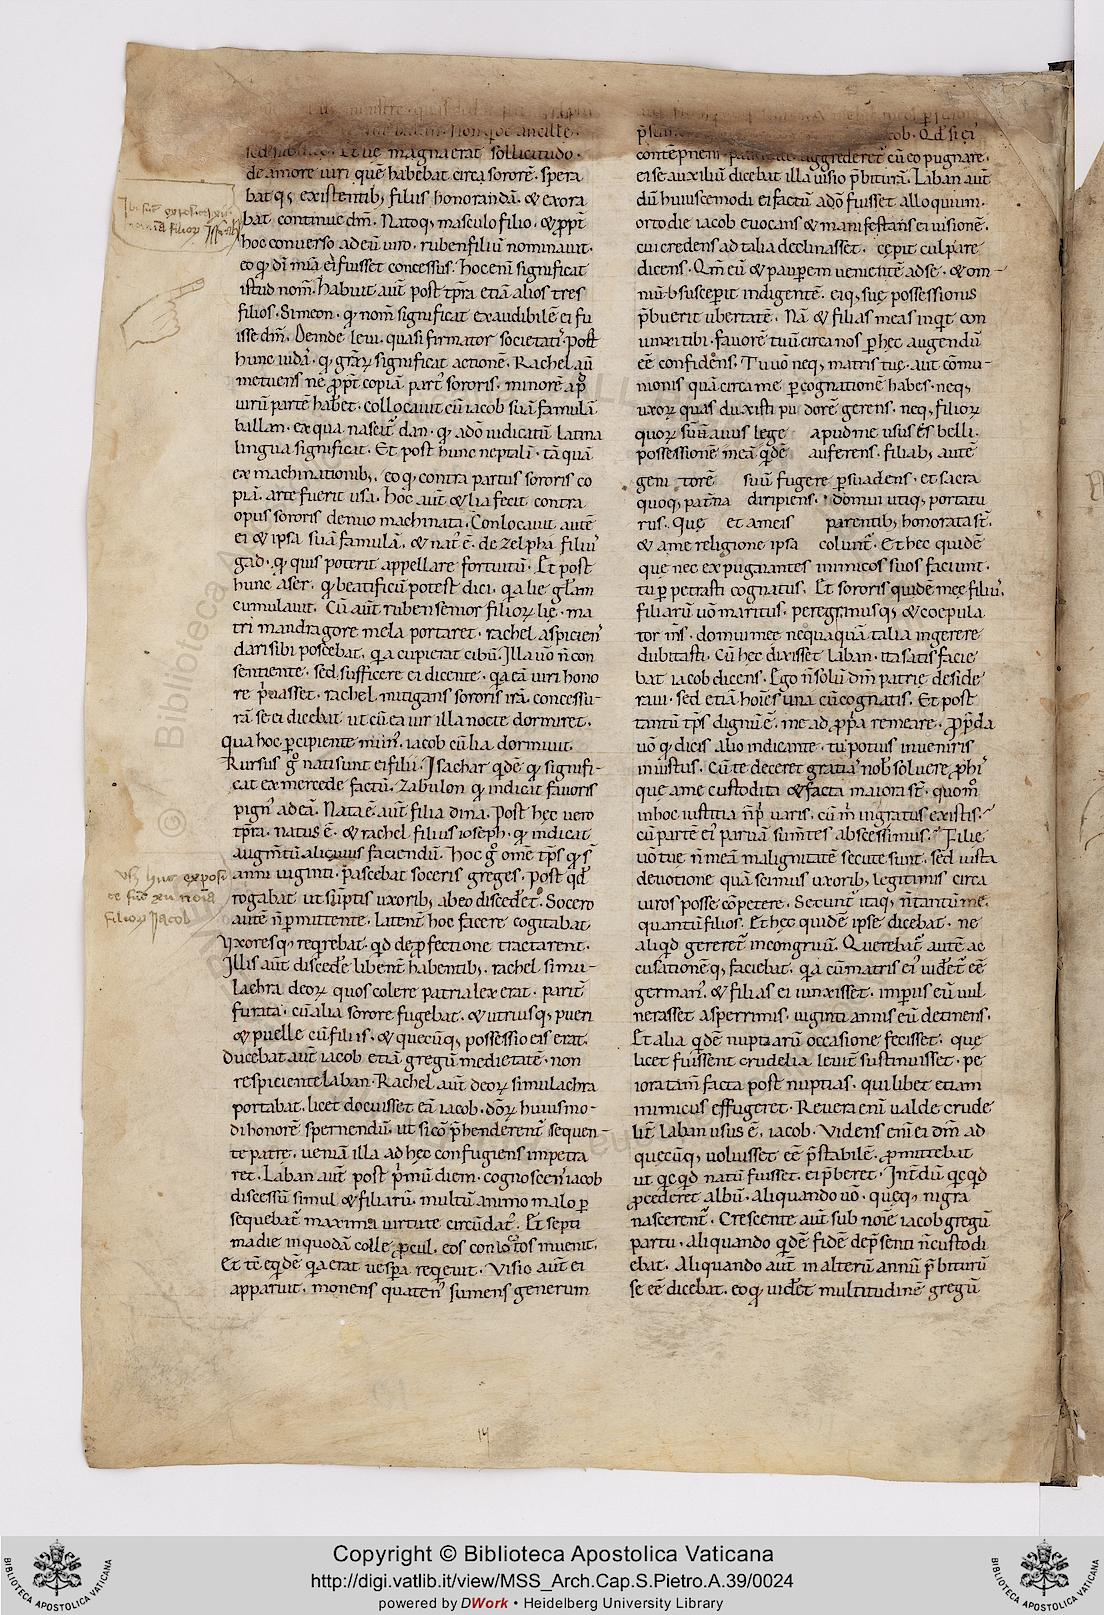 sed sub Et lie magna erat sollicitudo.
de amore uiri quē habebat circa sororē. spera
bat qꝫ existentibꝫ filiis honorandā. & exora
bat continue dm̄. Natoqꝫ masculo filio. & ꝓpt̄
hoc conuerso ad eū uiro. ruben filiū nominauit.
eo qͥ dī mīa ei fuisset concessus. Hoc enī significat
istud nom̄. habuit aūt post tp̄ra etiā alios tres
filios. Simeon. qͥ nom̄ significat exaudibilē ei fu
isse dm̄. Deinde leui. quasi firmator societatis. Post
hunc iudā. qͥ grāꝝ significat actionē. Rachel aū
metuens ne ꝓpt̄ copiā part᷒ sororis. minorē apͩ
uirū partē haberet. collocauit cū iacob suā famulā
ballan. ex qua nascit᷑ dan. qͥ adō iudicatū latina
lingua significat. Et post hunc neptali. tā quā
ex machinationibꝫ. eo qͥ contra partus sororis co
piā. arte fuerit usa. Hoc aūt & lia fecit contra
opus sororis denuo machinata. Conlocauit autē
ei & ipsa suā famulā. & nat᷒ ē. de zelpha filiu᷒
gad. qͥ quis poterit appellare fortuitū. Et post
hunc aser. qͥ beatificū potest dici. qa lie glam
cumulauit. Cū aūt ruben senior filioꝝ lie. ma
tri mandragore mela portaret. rachel aspicien᷒
dari sibi poscebat. qa cupierat cibū. Illa uō n̄ con
sentiente. sed sufficere ei dicente. qa eā uiri hono
re p̄uasset. rachel mitigans sororis irā. concessu-
rā se ei dicebat ut cū ea uir illa nocte dormiret.
Qua hoc percipiente mun᷒. iacob cū lia dormiuit.
Rursus gͦ nati sunt ei filii. Isachar qdē qͥ signifi-
cat ex mercede factū. Zabulon qͥ indicat fauoris
pign᷒ ad eā. Nata ē aūt filia dina. Post hec uero
tp̄ra. natus ē. & rachel filius ioseph. qͥ indicat
augm̄tū alicuius faciendū. Hoc gͦ om̄e tp̄s qͥ s̄
anni uiginti. pascebat soceris greges. Post qd
rogabat ut sūptis uxoribꝫ abeo discederet. Socero
autē n̄ permittente. latent̄ hoc facere cogitabat
Uxoresqꝫ reqrebat. qd de ꝓfectione tractarent.
Illis aūt discedere libent̄ habentibꝫ. rachel simu-
lachra deoꝝ quos colere patria lex erat. parit̄
furata. cū alia sorore fugebat. & utriusqꝫ pueri
& puelle cū filiis. & quecūqꝫ possessio eis erat.
Ducebat aūt iacob etiā gregū medietatē. non
respiciente Laban. Rachel aūt deoꝝ simulachra
portabat. licet docuisset eā iacob. dōꝝ huiusmo-
di honorē spernendū. ut si cō p̄henderent᷑ sequen-
te patre. ueniā illa ad hec confugiens impetra
ret. Laban aūt post p̄mū diem. cognoscens iacob
discessū simul & filiarū. multū animo malo per
sequebat᷑ maxima uirtute circūdat᷒. Et septi
ma die in quodā colle procul. eos conlocatos inuenit.
Et tē eqdē qa erat uespera reqeuit. Visio aūt ei
apparuit. monens quaten᷒ sumens generum
cob. Qd si ei
contēpneni aggrederet᷑ cū eo pugnare.
ei se auxiliū dicebat illa uisio p̄biturā. Laban aūt
dū huiuscemodi ei factū adō fuisset alloquium.
orto die iacob euocans & manifestans ei uisionē.
cui credens ad talia declinasset. cepit culpare
dicens. Qm̄ eū & paupem uenientē ad se. & om-
niū b susceperit indigentē. eiqꝫ sue possessionis
p̄buerit ubertatē. Nā & filias meas inqit con
iunxi tibi. fauorē tuū circa nos per hec augendū
eē confidens. Tu uō neqꝫ matris tue. aut cōmu-
nionis quā circa me per cognationē habes. neqꝫ
uxoꝝ quas duxisti pudorē gerens. neqꝫ filioꝝ
quoꝝ sum auus lege apud me usus es belli.
possessionē meā qdē auferens. filiabꝫ autē
geni torē suū fugere persuadens. et sacra
quoqꝫ patria diripiens. domui utiqꝫ portatu
rus. Que et ameis parentibꝫ honorata st̄.
& ame religione ipsa colunt᷑. Et hec quidē
que nec expugnantes inimicos suos faciunt.
tu per petrasti cognatus. Et sororis quidē mee filiu᷒,
filiarū uō maritus. peregrinusqꝫ & coepula
tor m̄s. domui mee nequaquā talia ingerere
dubitasti. Cū hec dixisset Laban. ita satis facie
bat iacob dicens. Ego n̄ solū dm̄ patrie deside
raui. sed etiā hoīes una cū cognatis. Et post
tantū tp̄s dignū ē. me ad ꝓpria remeare. De p̄da
uō qͣ dicis alio iudicante. tu potius inueniris
iniustus. Cū te deceret gratias nobis soluere ꝓ his
que ame custodita & facta maiora st̄. quom̄
in hoc iustitia n̄ p̄ uaris. cū m̄ ingratus existis.
cū partē ei᷒ paruā sum̄tes abscessimus. Filie
uō tue n̄ meā malignitatē secute sunt. sed iusta
deuotione quā scimus uxoribꝫ legitimis circa
uiros posse cōpetere. Secunt᷑ itaqꝫ n̄ tantū me.
quantū filios. Et hec quidē ipse dicebat. ne
aliqd gereret᷑ incongruū. Querebat᷑ autē ac
cusationēqꝫ faciebat. qa cū matris ei᷒ uideret᷑ eē
german᷒. & filias ei iunxisset. imperiis eū uul
nerasset asperrimis. uiginti annis eū detinens.
Et alia qdē nuptiarū occasione fecisset. que
licet fuissent crudelia leuit̄ sustinuisset. pe
iora tam̄ facta post nuptias. qui libet etiam
inimicus effugeret. Reuera enī ualde crude
lit̄ Laban usus ē. iacob. Videns enī ei dm̄ ad
quecūqꝫ uoluisset eē p̄stabilē. promittebat
ut qcqd natū fuisset. ei p̄beret. Int̄dū qcqd
procederet albū. aliquando uō. quecqꝫ nigra
nascerent᷑. Crescente aūt sub noīe iacob gregū
partu. aliquando qdē fidē depsenti n̄ custodi
ebat. Aliquando aūt in alterū annū p̄ biturū
se eē dicebat. eo qͥ uideret multitudinē gregū
14
Copyright © Biblioteca Apostolica Vaticana
http://digi.vatlib.it/view/MSS_Arch.Cap.S.Pietro.A.39/0024
powered by DWork • Heidelberg University Library
BIBLIOTECA APOSTOLICA VATICANA
BIBLIOTECA APOSTOLICA VATICANA